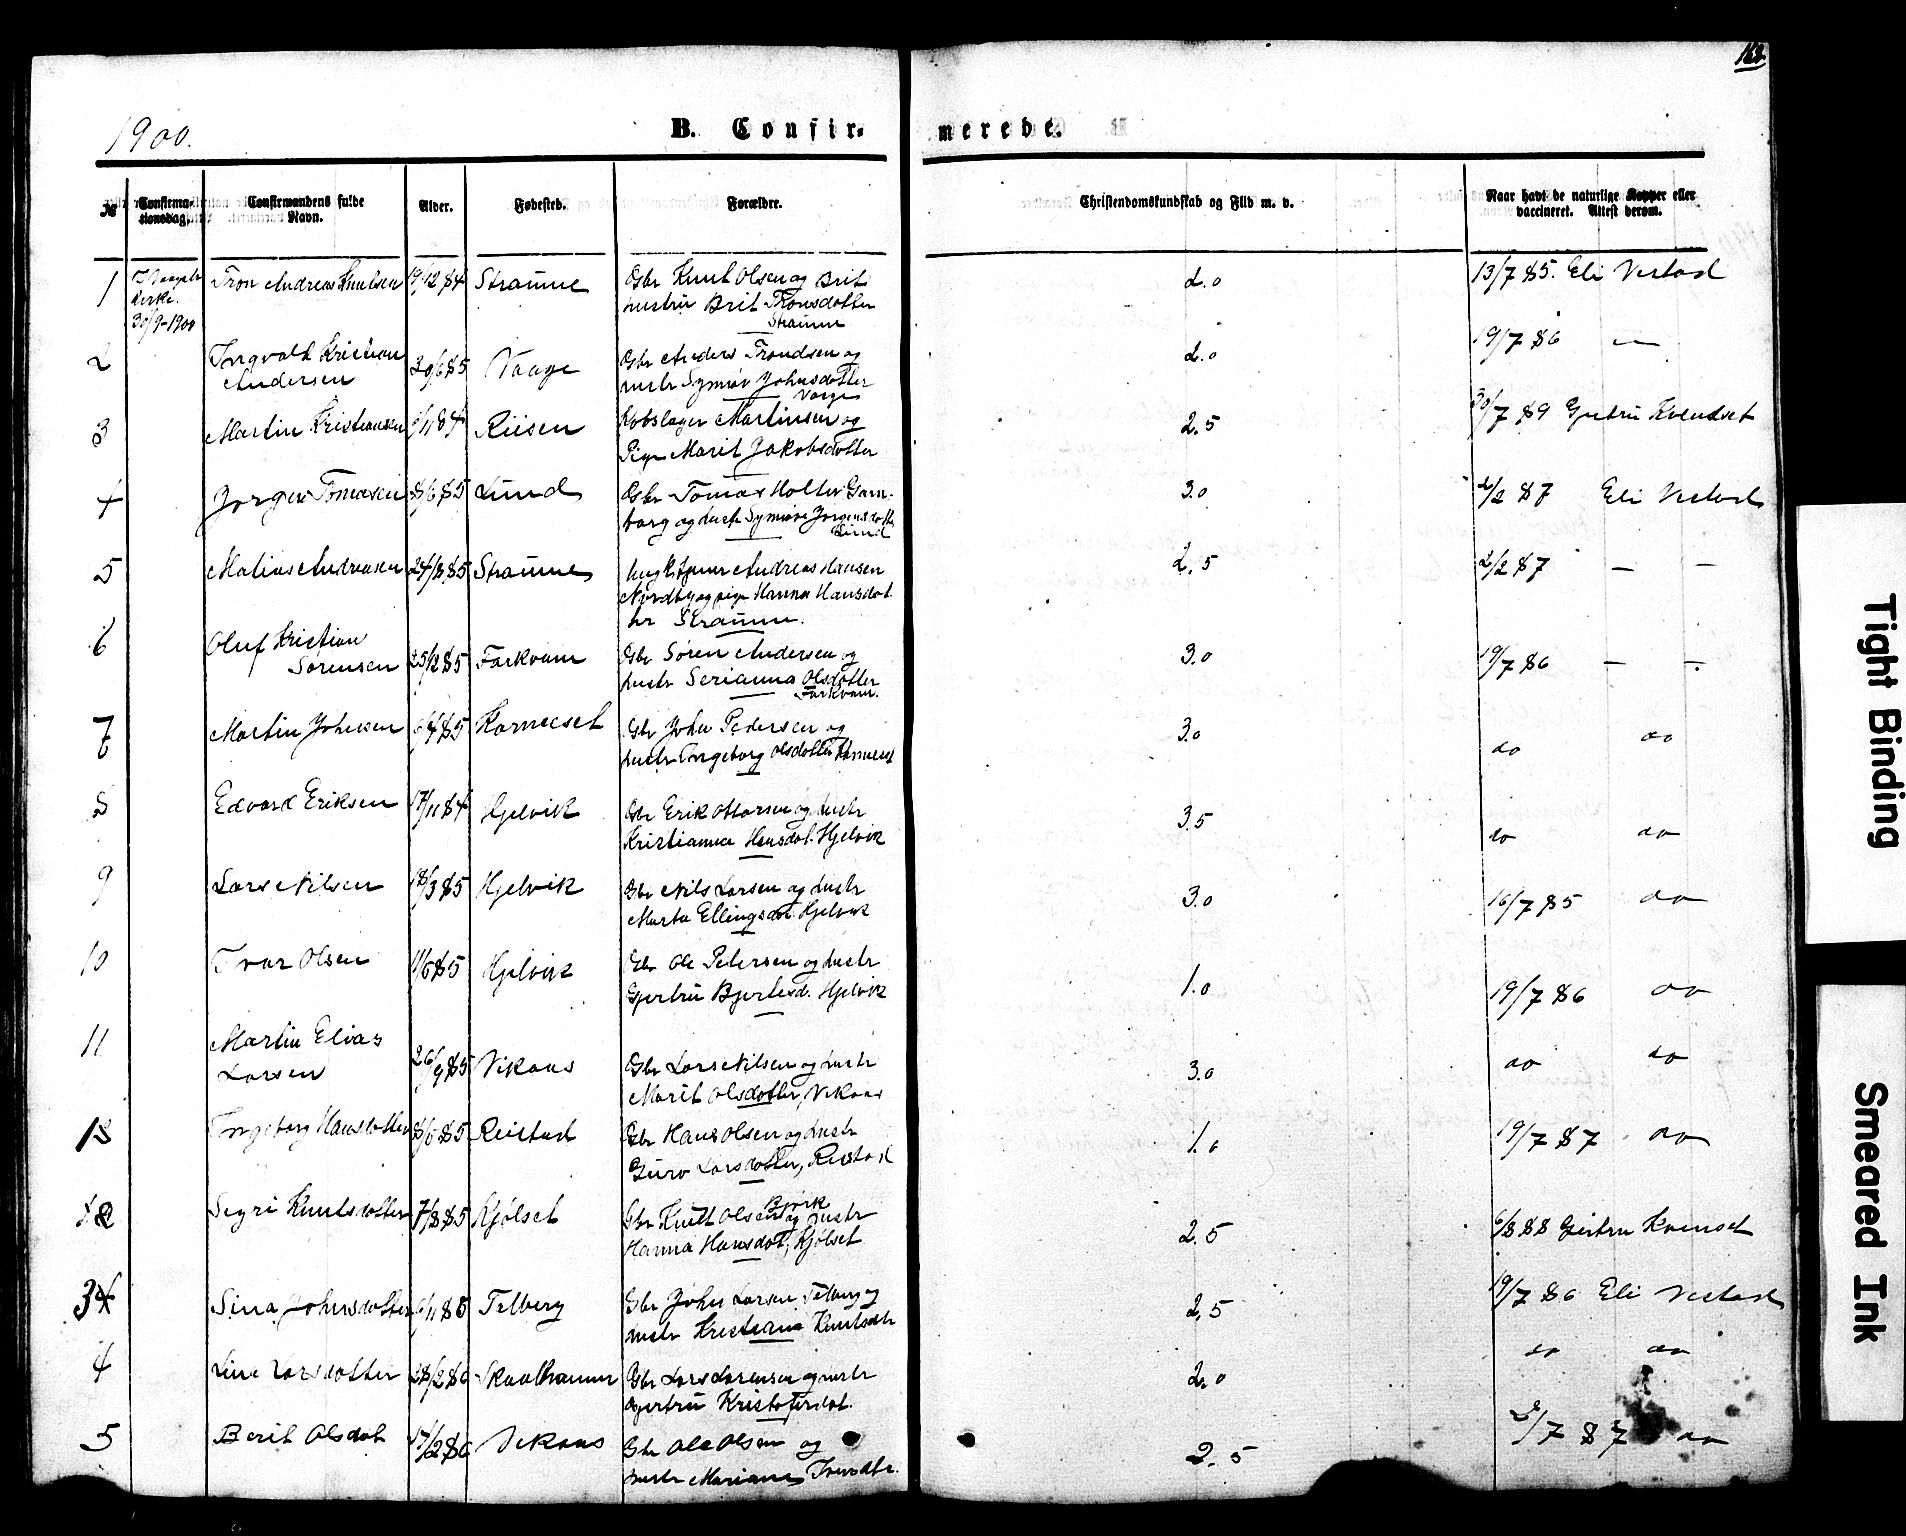 1900.
B. Confir-
merede.
№
Confirma-
tionsdag.
Confirmandens fulde
Navn.
Alder.
Fødested.
Forældre.
Christendomskundskab og Flid m. v.
Naar havt de naturlige Kopper eller
vaccineret. Attest derom.
1
kirke.
30/9-1900
Tron Andreas Knutsen
19/12 84
Straume
Gbr Knut Olsen og Brit
hustru Brit Tronsdotter
Straume
2.0
13/7 85. Eli Vestad
2
Ingvald Kristian
Andersen
30/6 85
Vaage
Gbr Anders Trondsen og
hustr Synnøv Johnsdotter
Vaage
2.0
19/7 86 —
3
Martin Kristiansen
/11 84
Riisen
Martinsen og
Pige Marit Jakobsdotter
2.5
30/7 89 Gjertru Kvendset
4
Jørgen Tomasen
8/6 85
Lund
Gbr Tomas Holter Garn-
borg og hustr Synnøve Jørgensdotter
Lund
3.0
2/2 87 Eli Vestad
5
Matias Andreasen
24/8 85
Straume
Ungkar Andreas Hansen
Nordby og pige Hanna Hansdot
ter Straume.
2.5
2/2 87 — —
6
Oluf Kristian
Sørensen
25/12 85
Farkvam
Gbr Søren Andersen og
hustr Serianna Olsdotter
Farkvam.
3.0
19/7 86 — —
7
Martin Johnsen
6/4 85
Kornesset
Gbr John Pedersen og
hustr Ingeborg Olsdotter
3.0
do do
8
Edvard Eriksen
17/11 84
Hjelvik
Gbr Erik Ottarsen og hustr
Kristianna Hansdot. Hjelvik
3.5
do do
9
Lars Nilsen
18/3 85
Hjelvik
Gbr Nils Larsen og hustr
Marta Ellingsdot. Hjelvik
3.0
16/7 85 do
10
Ivar Olsen
11/6 85
Hjelvik
Gbr Ole Petersen og hustr
Gjertru Bjertesd. Hjelvik
1.0
19/7 86 do
11
Martin Elias
Larsen
26/9 85
Vikaas
Gbr Lars Nilsen og hustr
Marit Olsdotter, Vikaas
3.0
do do
1
Ingeborg Hansdotter
8/6 85
Reistad
Gbr Hans Olsen og hustr
Guro Larsdotter, Reistad
1.0
19/7 87 do
2
Sigri Knutsdotter
7/8 85
Kjølset
Bjørk
Gbr Knut Olsen og hustr
Hanna Hansdot, Kjølset
2.5
6/8 88 Gjertru Kvenset
3
Sina Johnsdotter
6/11 85
Telberg
Gbr John Larsen Telberg og
hustr Kristiana Knutsdtr
2.5
19/7 86 Eli Vestad
4
Line Larsdotter
28/2 86
Skaalhammer
Gbr Lars Larensen og hustr
Gjertru Kristoferdot.
2.0
do do
5
Berit Olsdot
17/2 86
Vikaas
Gbr Ole Olsen og
hustr Mariane Iversdtr.
2.5
2/7 87 do
Tight Binding
Smeared Ink